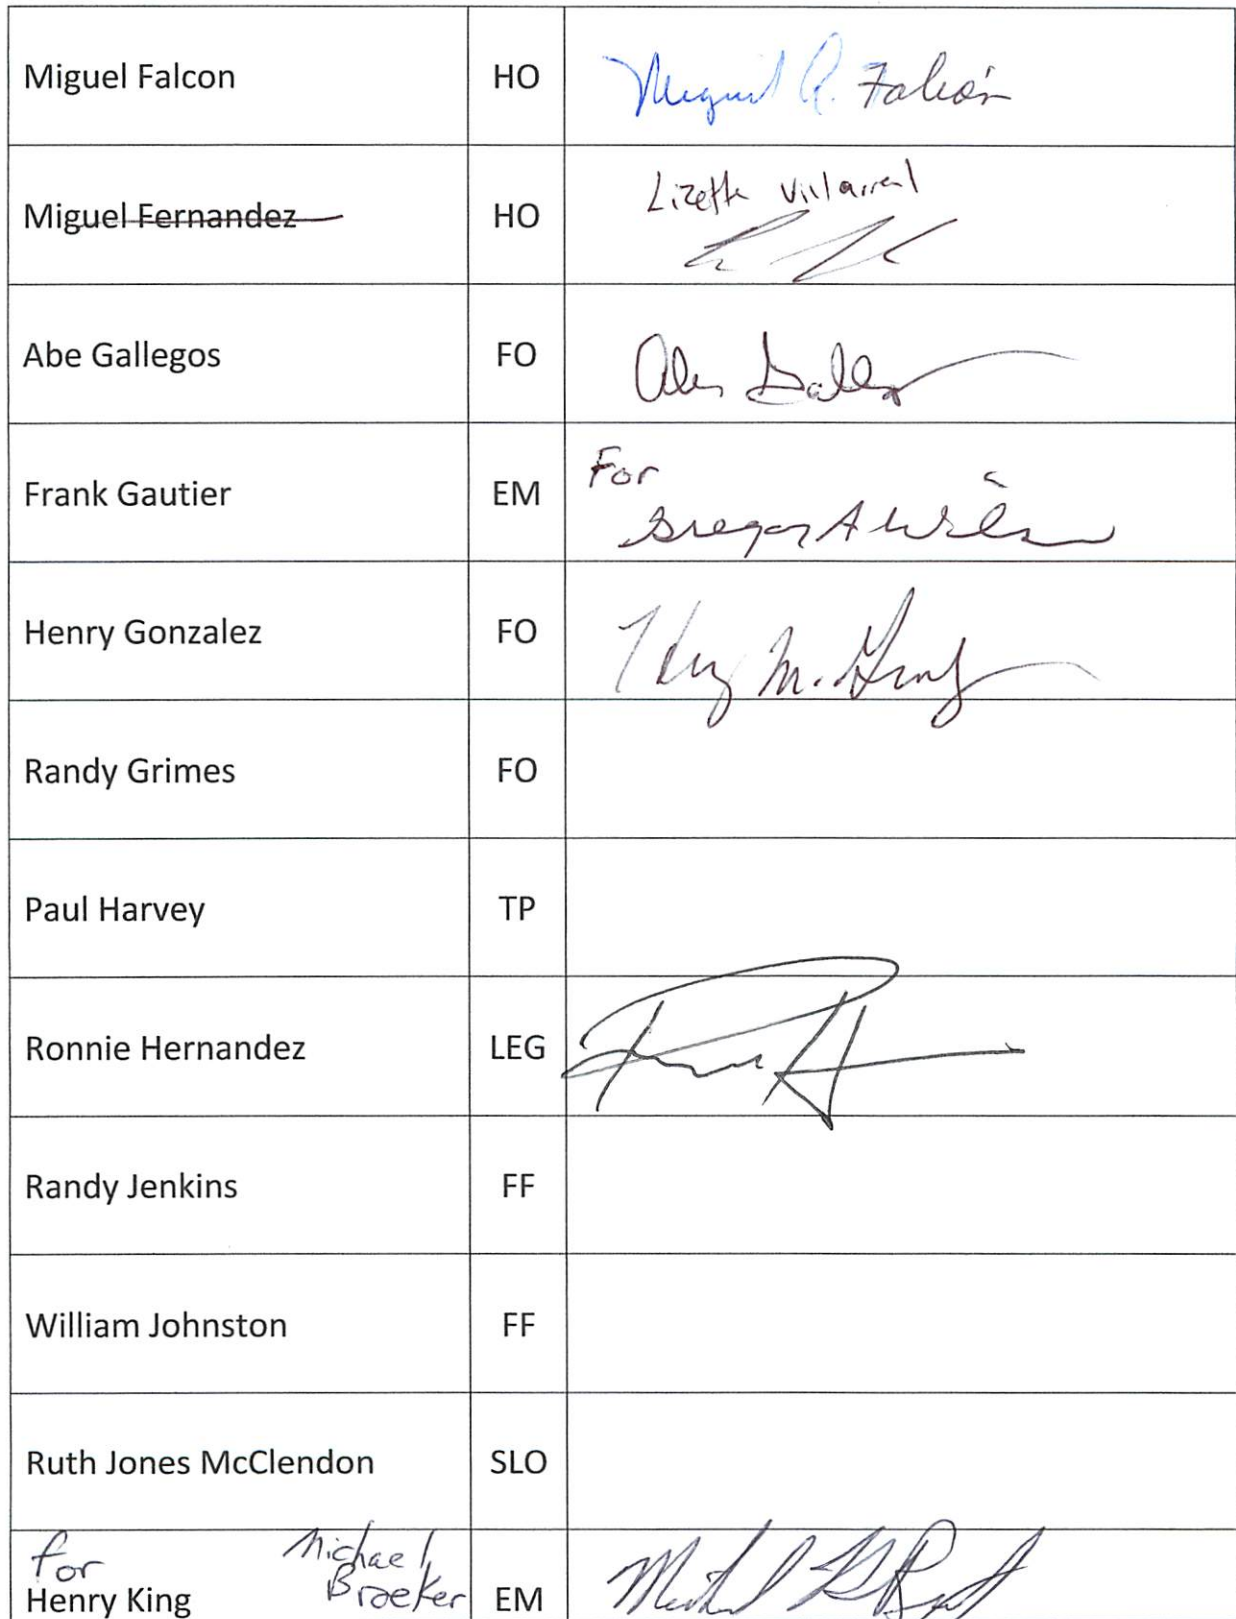 Miguel Falcon HO Miguel R. Falcón
Miguel Fernandez HO Lizette Villarreal
Abe Gallegos FO Abe
Frank Gautier EM For
Gregory A Wilson
Henry Gonzalez FO Henry M.
Randy Grimes FO
Paul Harvey TP
Ronnie Hernandez LEG
Randy Jenkins FF
William Johnston FF
Ruth Jones McClendon SLO
for Michael
Braeker
Henry King EM Michael